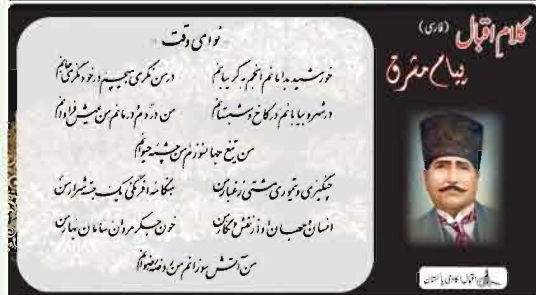 کلامِ اقبال (فارسی)
پیامِ مشرق
نوای وقت
خورشید بدامانم انجم بگریبانم
در من نگری هیچم در خود نگری جانم
در شهر و بیابانم در کاخ و شبستانم
من دردم و درمانم من عیش فراوانم
من تیغ جهانسوزم من چشمهٔ حیوانم
چنگیزی و تیموری مشتی ز غبار من
هنگامهٔ افرنگی یک جسته شرار من
انسان و جهان او از نقش و نگار من
خون جگر مردان سامان بهار من
من آتش سوزانم من روضهٔ رضوانم
اقبال اکادمی پاکستان